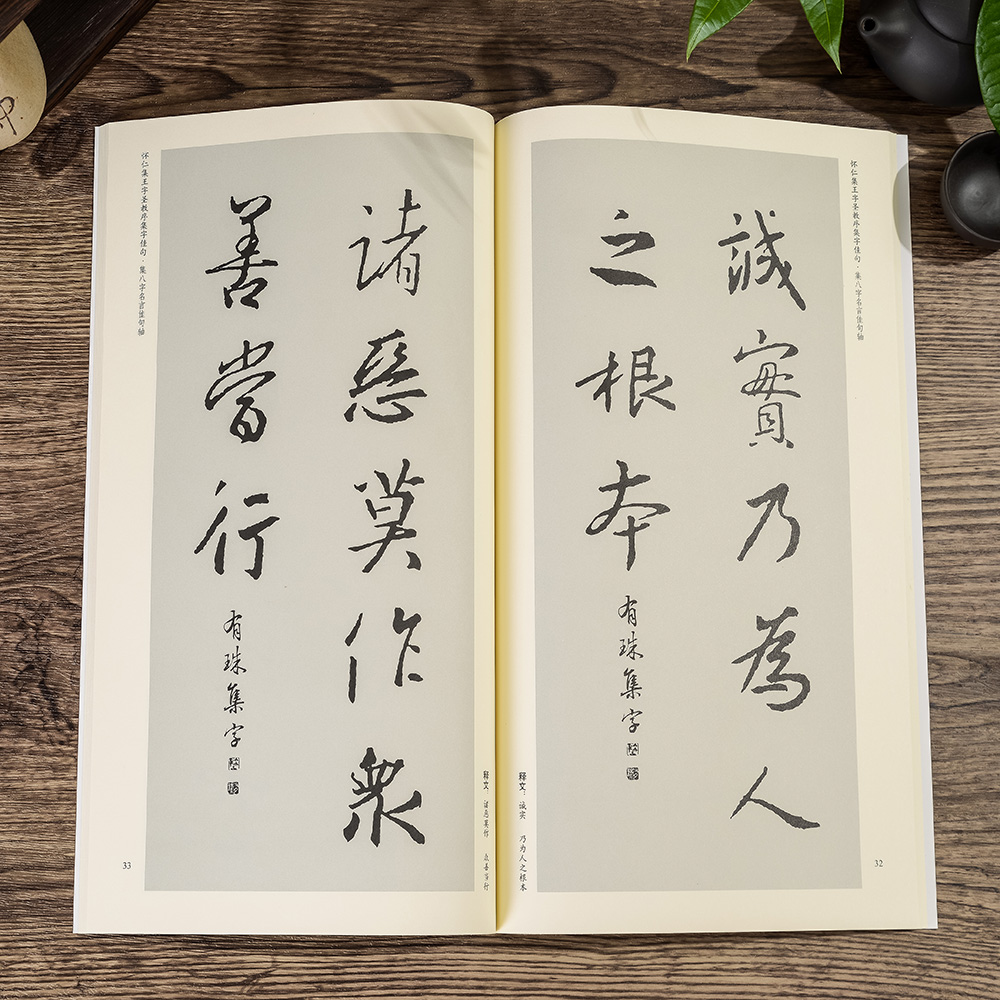 怀仁集王字圣教序集字佳句·集八字名言佳句轴
誠實乃為人
之根本
有珠集字
释文：诚实 乃为人之根本
32
怀仁集王字圣教序集字佳句·集八字名言佳句轴
諸惡莫作衆
善當行
有珠集字
释文：诸恶莫作 众善当行
33